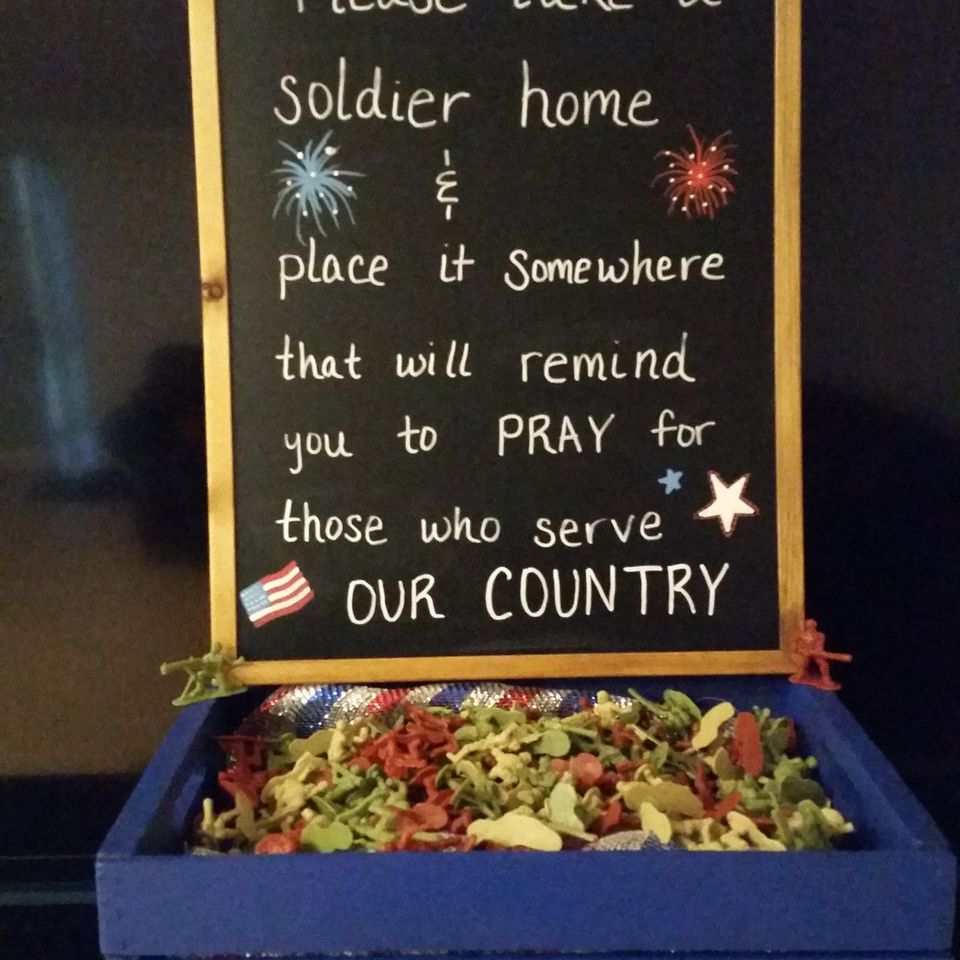 Please take a
soldier home
&
place it somewhere
that will remind
you to PRAY for
those who serve
OUR COUNTRY